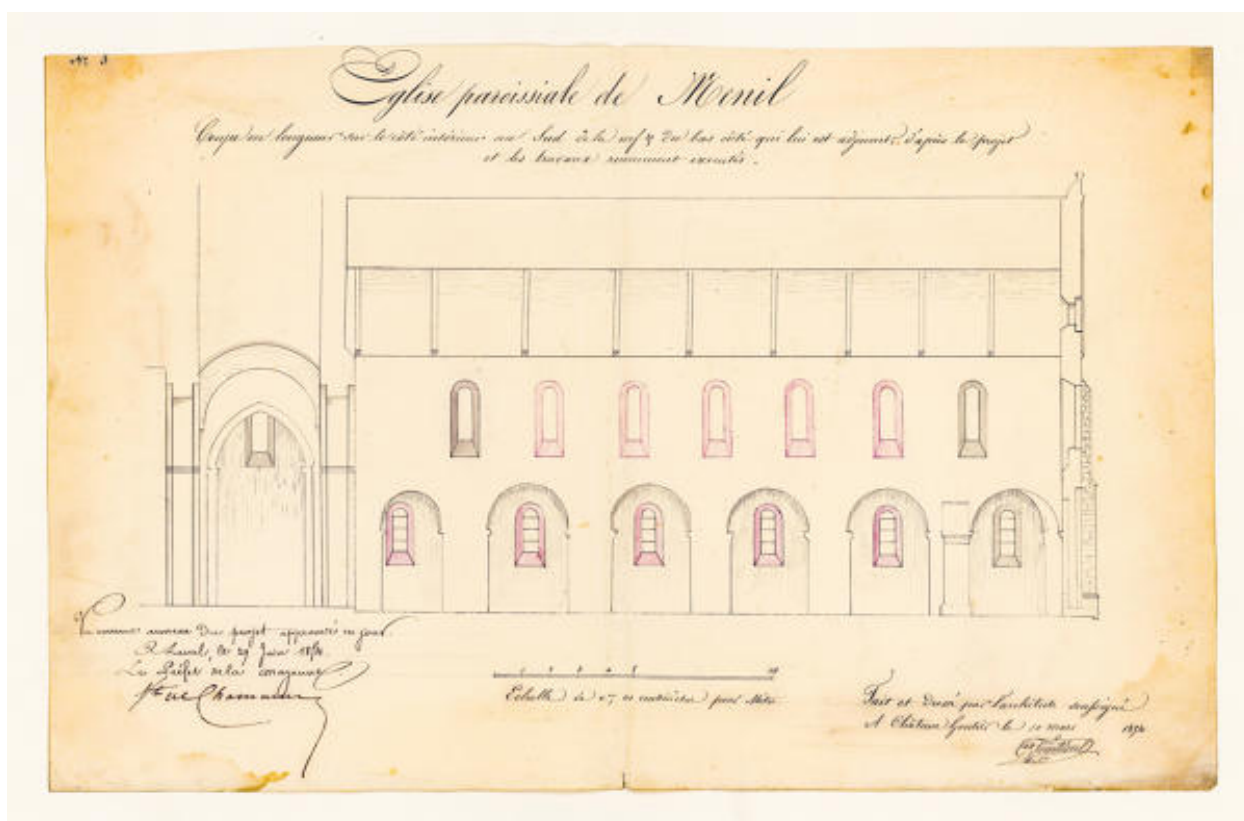 N° 3
Eglise paroissiale de Menil
Coupe en longueur sur le côté intérieur au Sud de la nef & du bas côté qui lui est adjacent, d'après le projet
et les travaux récemment executés.
annexe du projet approuvé ce jour.
A Laval, le 29 Juin 18
Le Préfet de la Mayenne
Echelle de 0, 10 centimètres pour Mètre
Fait et dressé par l'architecte soussigné
A Château Gontier le 10 mars 1854